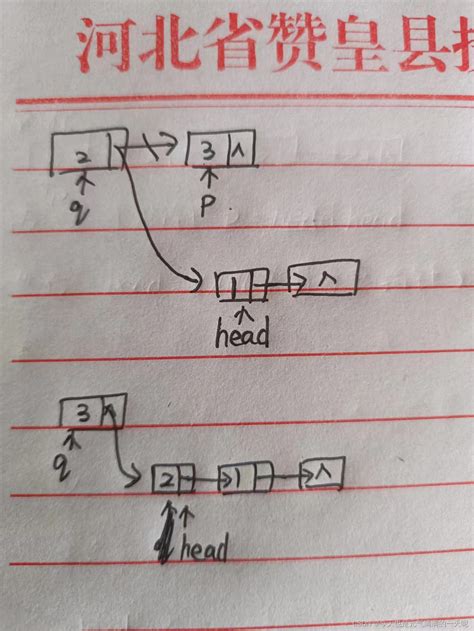 河北省赞皇县
2 3 ∧
q p
1 ∧
head
3
q
2 1 ∧
head